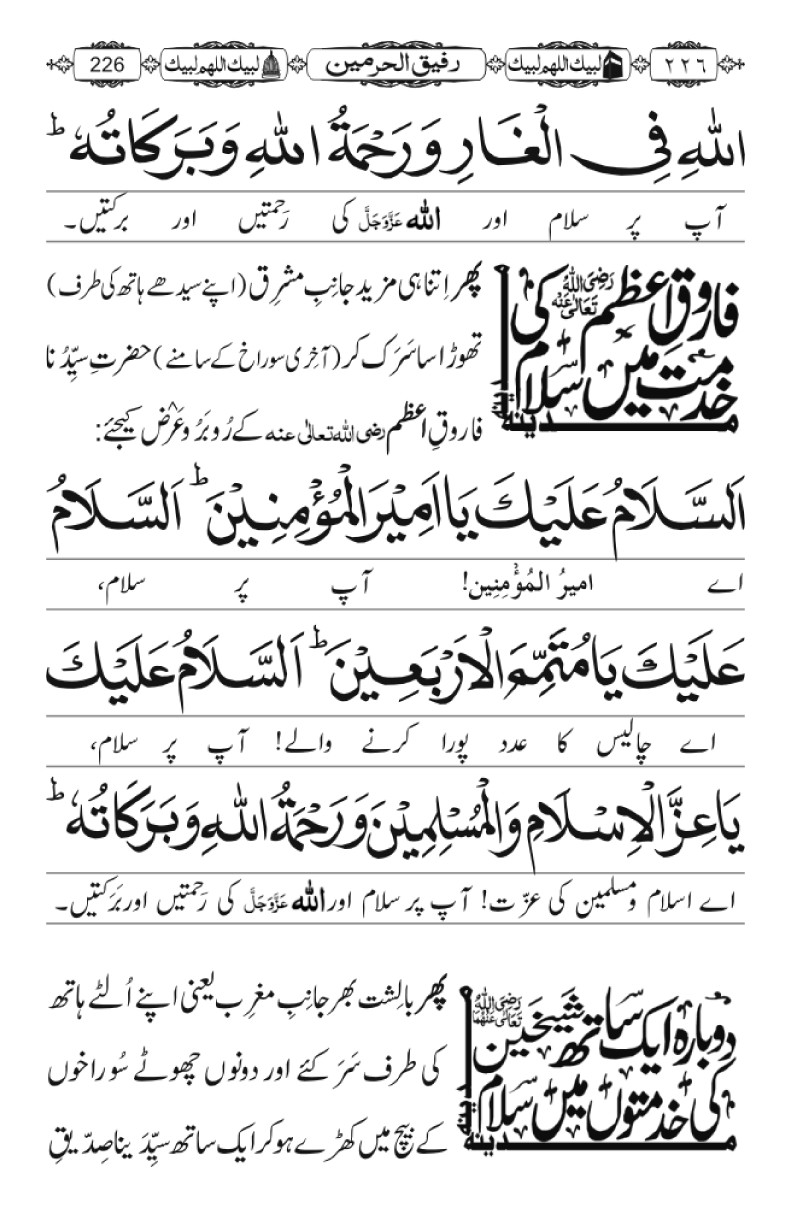 ٢٢٦ لبيك اللهم لبيك رفیق الحرمین لبيك اللهم لبيك 226
اللهِ فِی الْغَارِ وَرَحْمَةُ اللهِ وَبَرَكَاتُهٗ ؕ
آپ پر سلام اور اللہ عَزَّوَجَلَّ کی رَحمتیں اور برکتیں۔
فاروقِ اعظم رَضِیَ اللہُ تَعَالٰی عَنْہُ کی
خدمت میں سلام
مدینہ
مدینہ
پھر اِتنا ہی مزید جانِبِ مشرِق (اپنے سیدھے ہاتھ کی طرف)
تھوڑا سا سَرَک کر (آخِری سوراخ کے سامنے) حضرتِ سیِّدُنا
فاروقِ اعظم رضی اللہ تعالٰی عنہ کے رُوبَرُو عَرْض کیجئے:
اَلسَّلَامُ عَلَيْكَ يَا اَمِيْرَ الْمُؤْمِنِيْنَ ؕ اَلسَّلَامُ
اے امیرُ المُؤْمِنِین! آپ پر سلام،
عَلَيْكَ يَا مُتَمِّمَ الْاَرْبَعِيْنَ ؕ اَلسَّلَامُ عَلَيْكَ
اے چالیس کا عدد پورا کرنے والے! آپ پر سلام،
يَا عِزَّ الْاِسْلَامِ وَالْمُسْلِمِيْنَ وَرَحْمَةُ اللهِ وَبَرَكَاتُهٗ ؕ
اے اسلام و مسلمین کی عزّت! آپ پر سلام اور اللہ عَزَّوَجَلَّ کی رَحمتیں اور بَرَکتیں۔
دوبارہ ایک ساتھ شیخین رَضِیَ اللہُ تَعَالٰی عَنْہُمَا
کی خدمتوں میں سلام
مدینہ
مدینہ
پھر بالِشت بھر جانِبِ مغرِب یعنی اپنے اُلٹے ہاتھ
کی طرف سَرَکئے اور دونوں چھوٹے سُوراخوں
کے بیچ میں کھڑے ہو کر ایک ساتھ سیِّدَینا صدّیقِ